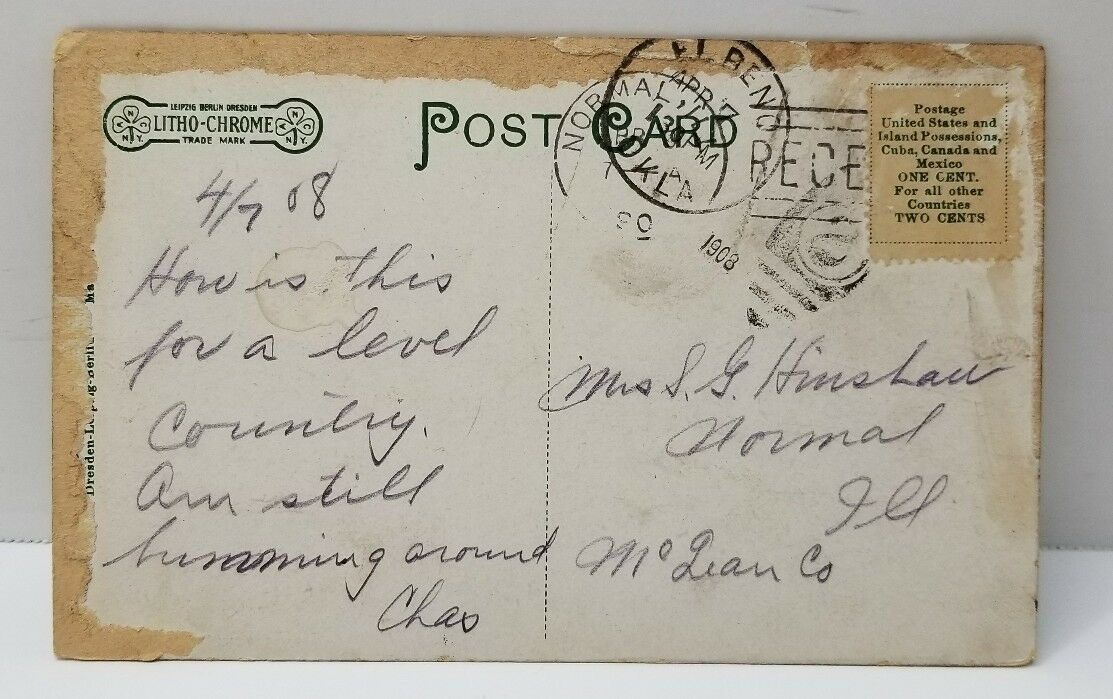 LEIPZIG BERLIN DRESDEN
LITHO-CHROME
TRADE MARK
N Y
N.Y.
POST CARD
NORMAL,
EL RENO
APR 7
M
OKLA
A
1908
RECE
Postage
United States and
Island Possessions,
Cuba, Canada and
Mexico
ONE CENT.
For all other
Countries
TWO CENTS
4/7 08
How is this
for a level
Country.
Am still
bumming around
Chas
Mrs S. G. Hinshaw
Normal
Ill
McLean Co